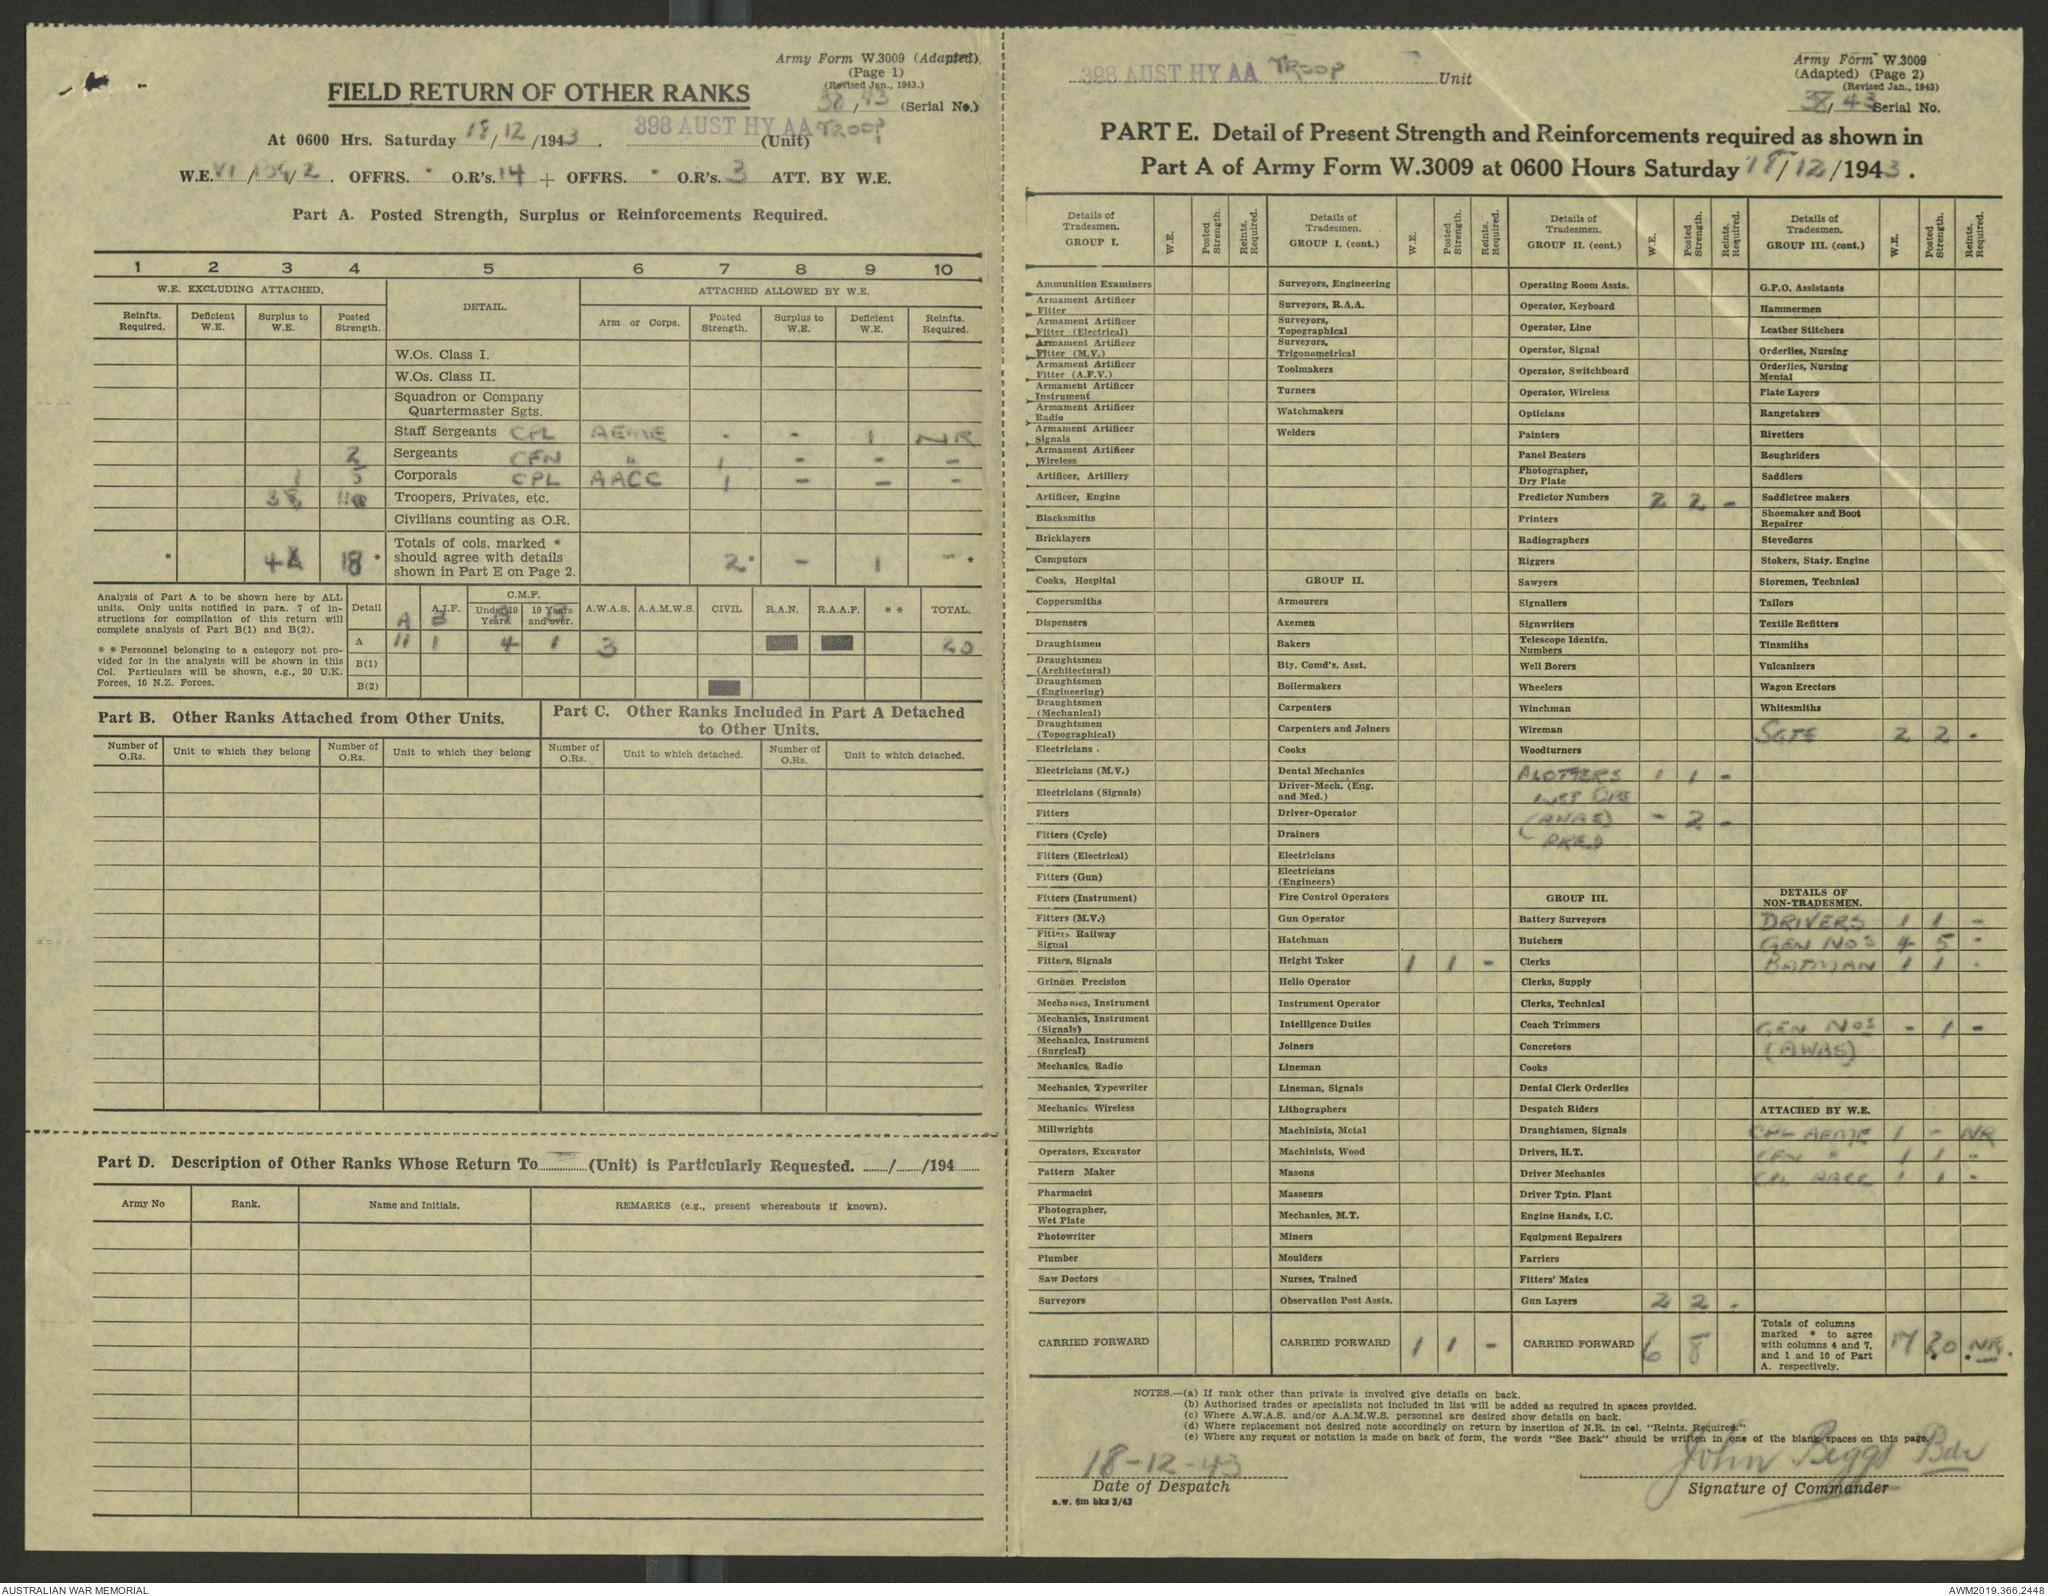 Army Form W.3009 (Adapted)
(Page 1)
(Revised Jan., 1943.)
FIELD RETURN OF OTHER RANKS
38/43 (Serial No.)
398 AUST HY AA TROOP
At 0600 Hrs. Saturday 18/12/1943. (Unit)
W.E. VI / /2. OFFRS. - O.R's. 14 + OFFRS. - O.R's. 3 ATT. BY W.E.
Part A. Posted Strength, Surplus or Reinforcements Required.
1 2 3 4 5 6 7 8 9 10
W.E. EXCLUDING ATTACHED. DETAIL. ATTACHED ALLOWED BY W.E.
Reinfts. Required. Deficient W.E. Surplus to W.E. Posted Strength. Arm or Corps. Posted Strength. Surplus to W.E. Deficient W.E. Reinfts. Required.
W.Os. Class I.
W.Os. Class II.
Squadron or Company
Quartermaster Sgts.
Staff Sergeants CPL AEME - - 1 NR
2 Sergeants CFN " 1 - - -
1 5 Corporals CPL AACC 1 - - -
38 Troopers, Privates, etc.
Civilians counting as O.R.
* 4 18 * Totals of cols. marked * should agree with details shown in Part E on Page 2. 2* - 1 - *
Analysis of Part A to be shown here by ALL
units. Only units notified in para. 7 of in-
structions for compilation of this return will
complete analysis of Part B(1) and B(2).
* * Personnel belonging to a category not pro-
vided for in the analysis will be shown in this
Col. Particulars will be shown, e.g., 20 U.K.
Forces, 10 N.Z. Forces.
Detail A.I.F. C.M.F. Under 19 Years. 19 Years and over. A.W.A.S. A.A.M.W.S. CIVIL R.A.N. R.A.A.F. * * TOTAL.
A 11 1 4 1 3 20
B(1)
B(2)
Part B. Other Ranks Attached from Other Units.
Part C. Other Ranks Included in Part A Detached
to Other Units.
Number of O.Rs. Unit to which they belong Number of O.Rs. Unit to which they belong Number of O.Rs. Unit to which detached. Number of O.Rs. Unit to which detached.
Part D. Description of Other Ranks Whose Return To (Unit) is Particularly Requested. / /194
Army No Rank. Name and Initials. REMARKS (e.g., present whereabouts if known).
398 AUST HY AA TROOP Unit
Army Form W.3009
(Adapted) (Page 2)
(Revised Jan., 1943)
38/43 Serial No.
PART E. Detail of Present Strength and Reinforcements required as shown in
Part A of Army Form W.3009 at 0600 Hours Saturday 18/12/1943.
Details of Tradesmen. GROUP I. W.E. Posted Strength. Reints. Required.
Ammunition Examiners
Armament Artificer Fitter
Armament Artificer Fitter (Electrical)
Armament Artificer Fitter (M.V.)
Armament Artificer Fitter (A.F.V.)
Armament Artificer Instrument
Armament Artificer Radio
Armament Artificer Signals
Armament Artificer Wireless
Artificer, Artillery
Artificer, Engine
Blacksmiths
Bricklayers
Computors
Cooks, Hospital
Coppersmiths
Dispensers
Draughtsmen
Draughtsmen (Architectural)
Draughtsmen (Engineering)
Draughtsmen (Mechanical)
Draughtsmen (Topographical)
Electricians
Electricians (M.V.)
Electricians (Signals)
Fitters
Fitters (Cycle)
Fitters (Electrical)
Fitters (Gun)
Fitters (Instrument)
Fitters (M.V.)
Fitters Railway Signal
Fitters, Signals
Grinder Precision
Mechanics, Instrument
Mechanics, Instrument (Signals)
Mechanics, Instrument (Surgical)
Mechanics, Radio
Mechanics, Typewriter
Mechanics Wireless
Millwrights
Operators, Excavator
Pattern Maker
Pharmacist
Photographer, Wet Plate
Photowriter
Plumber
Saw Doctors
Surveyors
CARRIED FORWARD
Details of Tradesmen. GROUP I. (cont.) W.E. Posted Strength. Reints. Required.
Surveyors, Engineering
Surveyors, R.A.A.
Surveyors, Topographical
Surveyors, Trigonometrical
Toolmakers
Turners
Watchmakers
Welders
GROUP II.
Armourers
Axemen
Bakers
Bty. Comd's. Asst.
Boilermakers
Carpenters
Carpenters and Joiners
Cooks
Dental Mechanics
Driver-Mech. (Eng. and Med.)
Driver-Operator
Drainers
Electricians
Electricians (Engineers)
Fire Control Operators
Gun Operator
Hatchman
Height Taker 1 1 -
Helio Operator
Instrument Operator
Intelligence Duties
Joiners
Lineman
Lineman, Signals
Lithographers
Machinists, Metal
Machinists, Wood
Masons
Masseurs
Mechanics, M.T.
Miners
Moulders
Nurses, Trained
Observation Post Assts.
CARRIED FORWARD 1 1 -
Details of Tradesmen. GROUP II. (cont.) W.E. Posted Strength. Reints. Required.
Operating Room Assts.
Operator, Keyboard
Operator, Line
Operator, Signal
Operator, Switchboard
Operator, Wireless
Opticians
Painters
Panel Beaters
Photographer, Dry Plate
Predictor Numbers 2 2 -
Printers
Radiographers
Riggers
Sawyers
Signallers
Signwriters
Telescope Identfn. Numbers
Well Borers
Wheelers
Winchman
Wireman
Woodturners
PLOTTERS 1 1 -
(AWAS) - 2 -
PRED
GROUP III.
Battery Surveyors
Butchers
Clerks
Clerks, Supply
Clerks, Technical
Coach Trimmers
Concretors
Cooks
Dental Clerk Orderlies
Despatch Riders
Draughtsmen, Signals
Drivers, H.T.
Driver Mechanics
Driver Tptn. Plant
Engine Hands, I.C.
Equipment Repairers
Farriers
Fitters' Mates
Gun Layers 2 2 -
CARRIED FORWARD 6 8
Details of Tradesmen. GROUP III. (cont.) W.E. Posted Strength. Reints. Required.
G.P.O. Assistants
Hammermen
Leather Stitchers
Orderlies, Nursing
Orderlies, Nursing Mental
Plate Layers
Rangetakers
Rivetters
Roughriders
Saddlers
Saddletree makers
Shoemaker and Boot Repairer
Stevedores
Stokers, Staty. Engine
Storemen, Technical
Tailors
Textile Refitters
Tinsmiths
Vulcanizers
Wagon Erectors
Whitesmiths
SGTS 2 2 -
DETAILS OF NON-TRADESMEN.
DRIVERS 1 1 -
GEN NOS 4 5 -
BATMAN 1 1 -
GEN NOS - 1 -
(AWAS)
ATTACHED BY W.E.
CPL AEME 1 - NR
CFN " 1 1 -
CPL AACC 1 1 -
Totals of columns marked * to agree with columns 4 and 7, and 1 and 10 of Part A. respectively. 17 20 * NR. *
NOTES.—(a) If rank other than private is involved give details on back.
(b) Authorised trades or specialists not included in list will be added as required in spaces provided.
(c) Where A.W.A.S. and/or A.A.M.W.S. personnel are desired show details on back.
(d) Where replacement not desired note accordingly on return by insertion of N.R. in col. "Reints. Required."
(e) Where any request or notation is made on back of form, the words "See Back" should be written in one of the blank spaces on this page.
18-12-43
Date of Despatch
a.w. 6m bks 3/43
John Beggs Bdr
Signature of Commander
AUSTRALIAN WAR MEMORIAL
AWM2019.366.2448